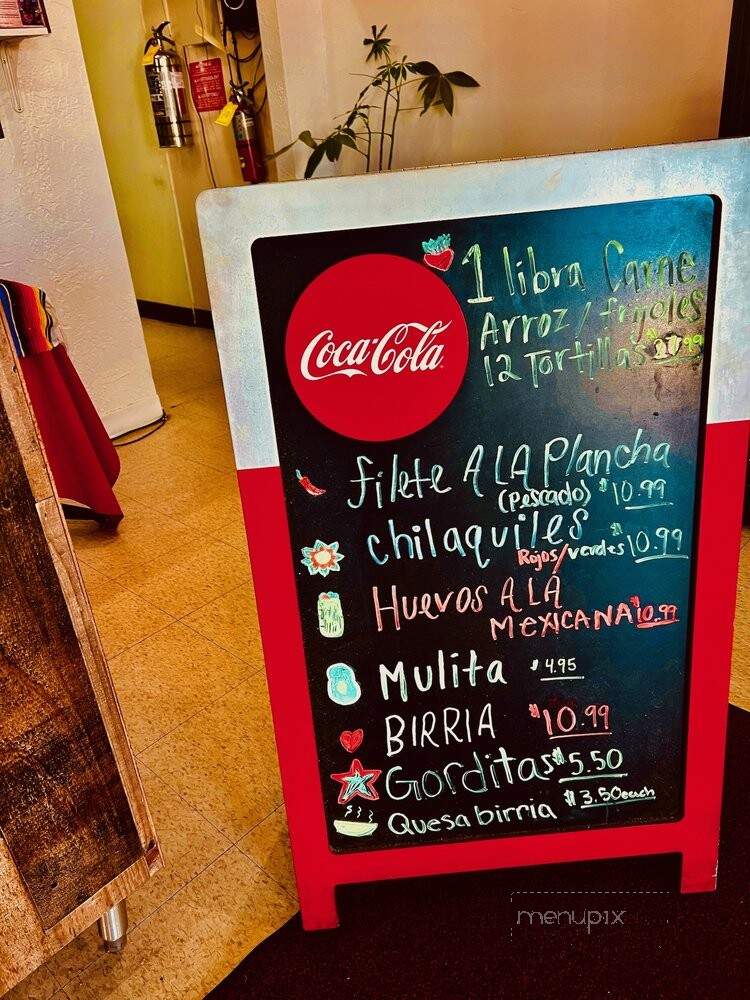 1 libra Carne
Arroz / frijoles
12 Tortillas
Coca-Cola
filete A LA Plancha
(Pescado) $10.99
chilaquiles
Rojos/verdes $10.99
Huevos A LA
MEXICANA $10.99
Mulita $4.95
BIRRIA $10.99
Gorditas $5.50
Quesabirria $3.50 each
menupix